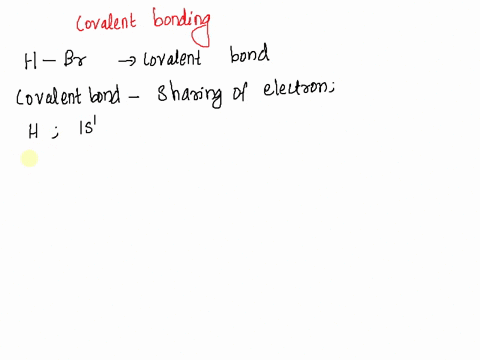 Covalent bonding
H - Br → Covalent bond
Covalent bond - Sharing of electron;
H ; 1s¹